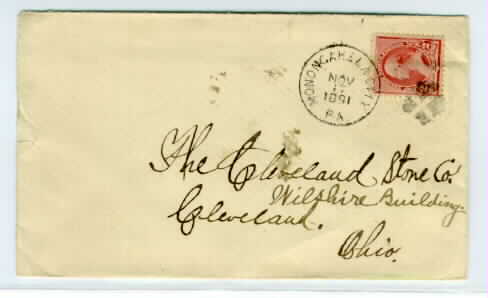 MONONGAHELA CITY
NOV
11
1891
PA.
The Cleveland Stone Co.
Wilshire Building.
Cleveland.
Ohio.